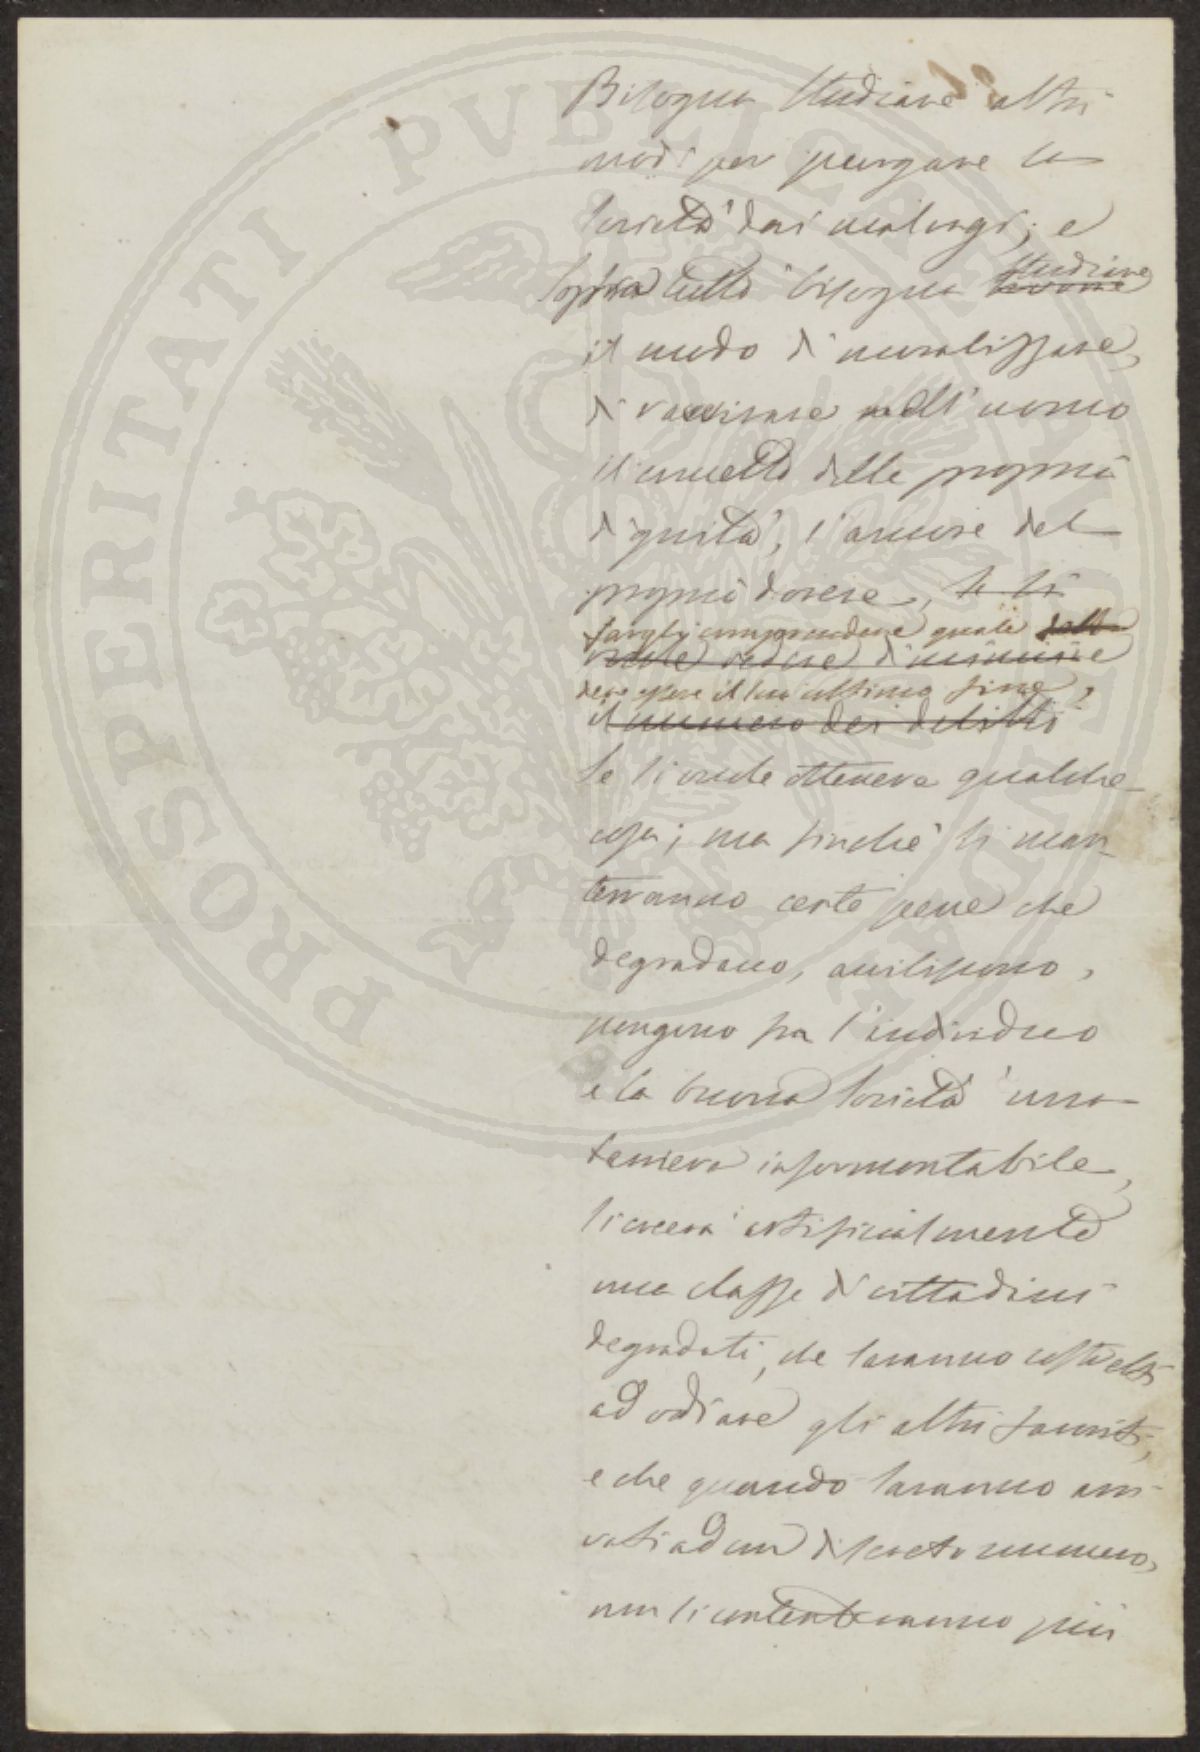 Bisogna studiare altri
modi per purgare la
società dai malvagi; e
sopra tutto bisogna studiare
il modo di moralizzare,
di ravvivare nell'uomo
il concetto della propria
dignità, l'amore del
proprio dovere, se si
fargli comprendere quale
vuole vedere diminuire
deve essere il suo ultimo fine,
il numero dei delitti
Se si vuole ottenere qualche
cosa; ma finchè si man-
terranno certe pene che
degradano, aviliscono,
pongono fra l'individuo
e la buona società una
barriera insormontabile,
si creerà artificialmente
una classe di cittadini
degradati, che saranno costretti
ad odiare gli altri favoriti,
e che quando saranno arri-
vati ad un discreto numero,
non si contenteranno più
PROSPERITATI PUBLICAE